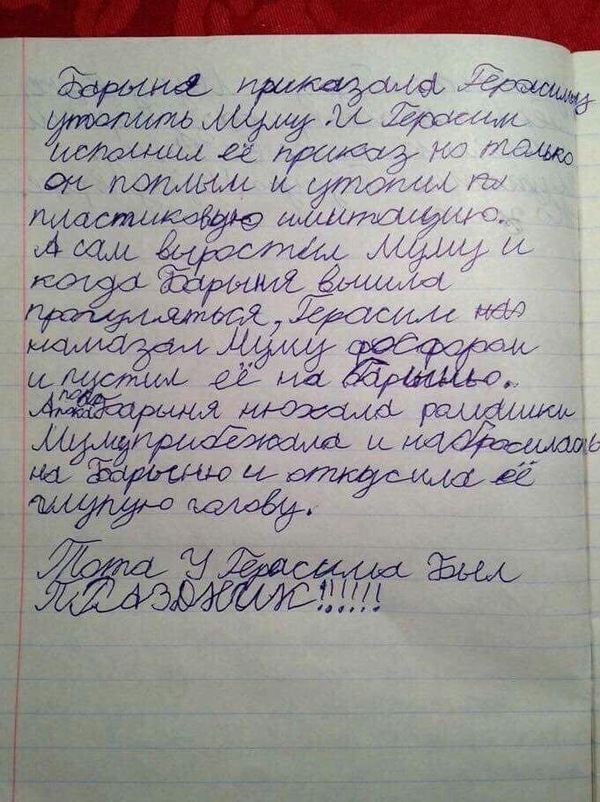 Барыня приказала Герасиму
утопить Муму. И Герасим
исполнил её приказ но только
он поплыл и утопил
пластиковую имитацию.
А сам выростил Муму и
когда Барыня вышла
прогуляться, Герасим на
намазал Муму фосфором
и пустил её на Барынью.
А пока Барыня нюхала ромашки
Муму прибежала и набросилась
на Барыню и откусила её
глупую голову.
Тота У Герасима Был
ПРАЗДНИК!!!!!!